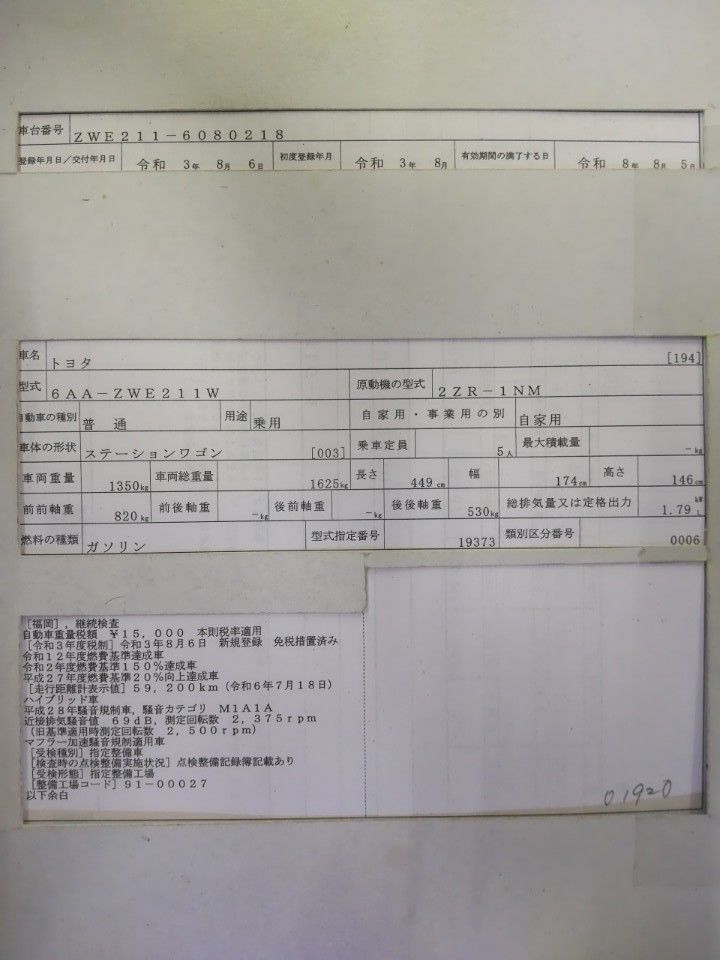 車台番号 ZWE211-6080218
登録年月日/交付年月日 令和 3年 8月 6日 初度登録年月 令和 3年 8月 有効期間の満了する日 令和 8年 8月 5日
車名 トヨタ [194]
型式 6AA-ZWE211W 原動機の型式 2ZR-1NM
自動車の種別 普通 用途 乗用 自家用・事業用の別 自家用
車体の形状 ステーションワゴン [003] 乗車定員 5人 最大積載量 -kg
車両重量 1350kg 車両総重量 1625kg 長さ 449cm 幅 174cm 高さ 146cm
前前軸重 820kg 前後軸重 -kg 後前軸重 -kg 後後軸重 530kg 総排気量又は定格出力 1.79 kW L
燃料の種類 ガソリン 型式指定番号 19373 類別区分番号 0006
[福岡],継続検査
自動車重量税額 ¥15,000 本則税率適用
[令和3年度税制]令和3年8月6日 新規登録 免税措置済み
令和12年度燃費基準達成車
令和2年度燃費基準150%達成車
平成27年度燃費基準20%向上達成車
[走行距離計表示値]59,200km(令和6年7月18日)
ハイブリッド車
平成28年騒音規制車,騒音カテゴリ M1A1A
近接排気騒音値 69dB,測定回転数 2,375rpm
(旧基準適用時測定回転数 2,500rpm)
マフラー加速騒音規制適用車
[受検種別]指定整備車
[検査時の点検整備実施状況]点検整備記録簿記載あり
[受検形態]指定整備工場
[整備工場コード]91-00027
以下余白
01920